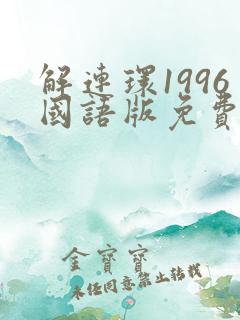 解連環1996
國語版免費
金寶寶
未经同意禁止转载